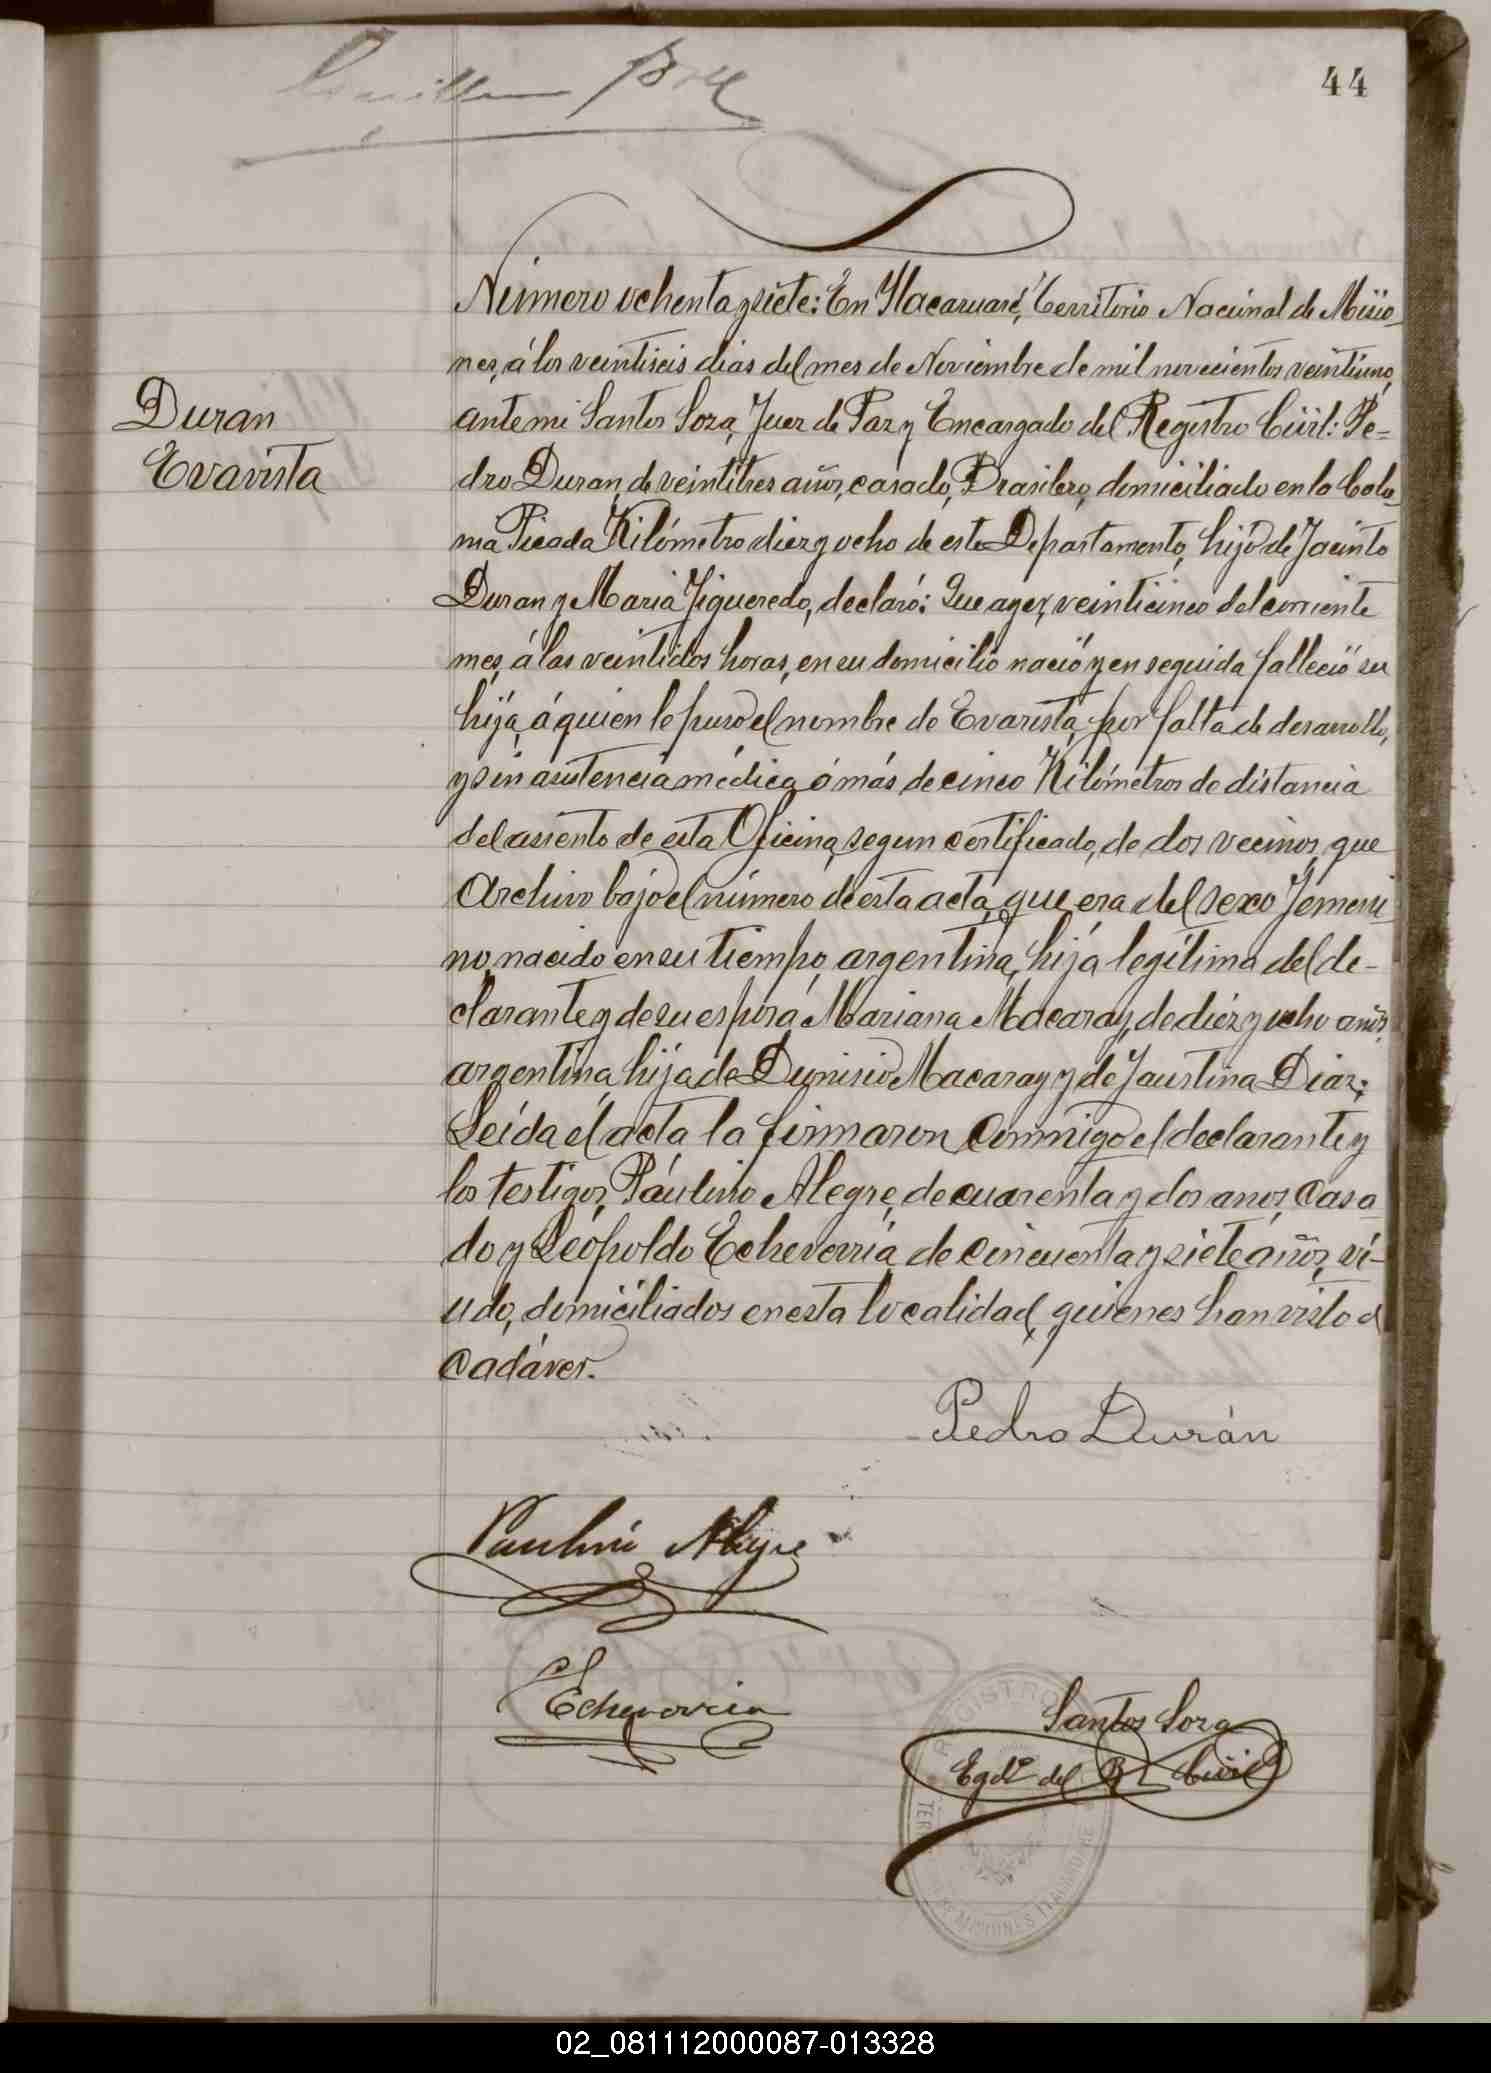 44
Número ochenta y siete: En Itacaruaré, Territorio Nacional de Misio-
nes, á los veintiseis dias del mes de Noviembre de mil novecientos veintiuno,
ante mi Santos Soza, Juez de Paz y Encargado del Registro Civil: Pe=
Duran
Evarista
dro Duran, de veintitres años, casado, Brasilero, domiciliado en la Colo-
nia Picada Kilómetro diez y ocho de este Departamento, hijo de Jacinto
Duran y Maria Figueredo, declaró: Que ayer, veinticinco del corriente
mes, á las veintidos horas, en su domicilio nació y en seguida falleció su
hija, á quien le puso el nombre de Evarista, por falta de desarrollo,
y sin asistencia médica á más de cinco Kilómetros de distancia
del asiento de esta Oficina, segun certificado, de dos vecinos, que
archivo bajo el número de esta acta, que era del sexo Femeni
no, nacido en su tiempo, argentina, hija legítima del de-
clarante y de su esposa Mariana Macaray, de diez y ocho años
argentina, hija de Dionisio Macaray y de Faustina Diaz:
Leída el acta la firmaron conmigo el declarante y
los testigos, Páulino Alegre, de cuarenta y dos anos, casa
do y Leopoldo Echeverria, de cincuenta y siete años, vi-
udo, domiciliados en esta localidad, quienes han visto el
cadáver.
Pedro Durán
Paulino Alegre
Echeverria
Santos Soza
Egdo del R. Civil
REGISTRO
MISIONES ITACARUARE
02_081112000087-013328